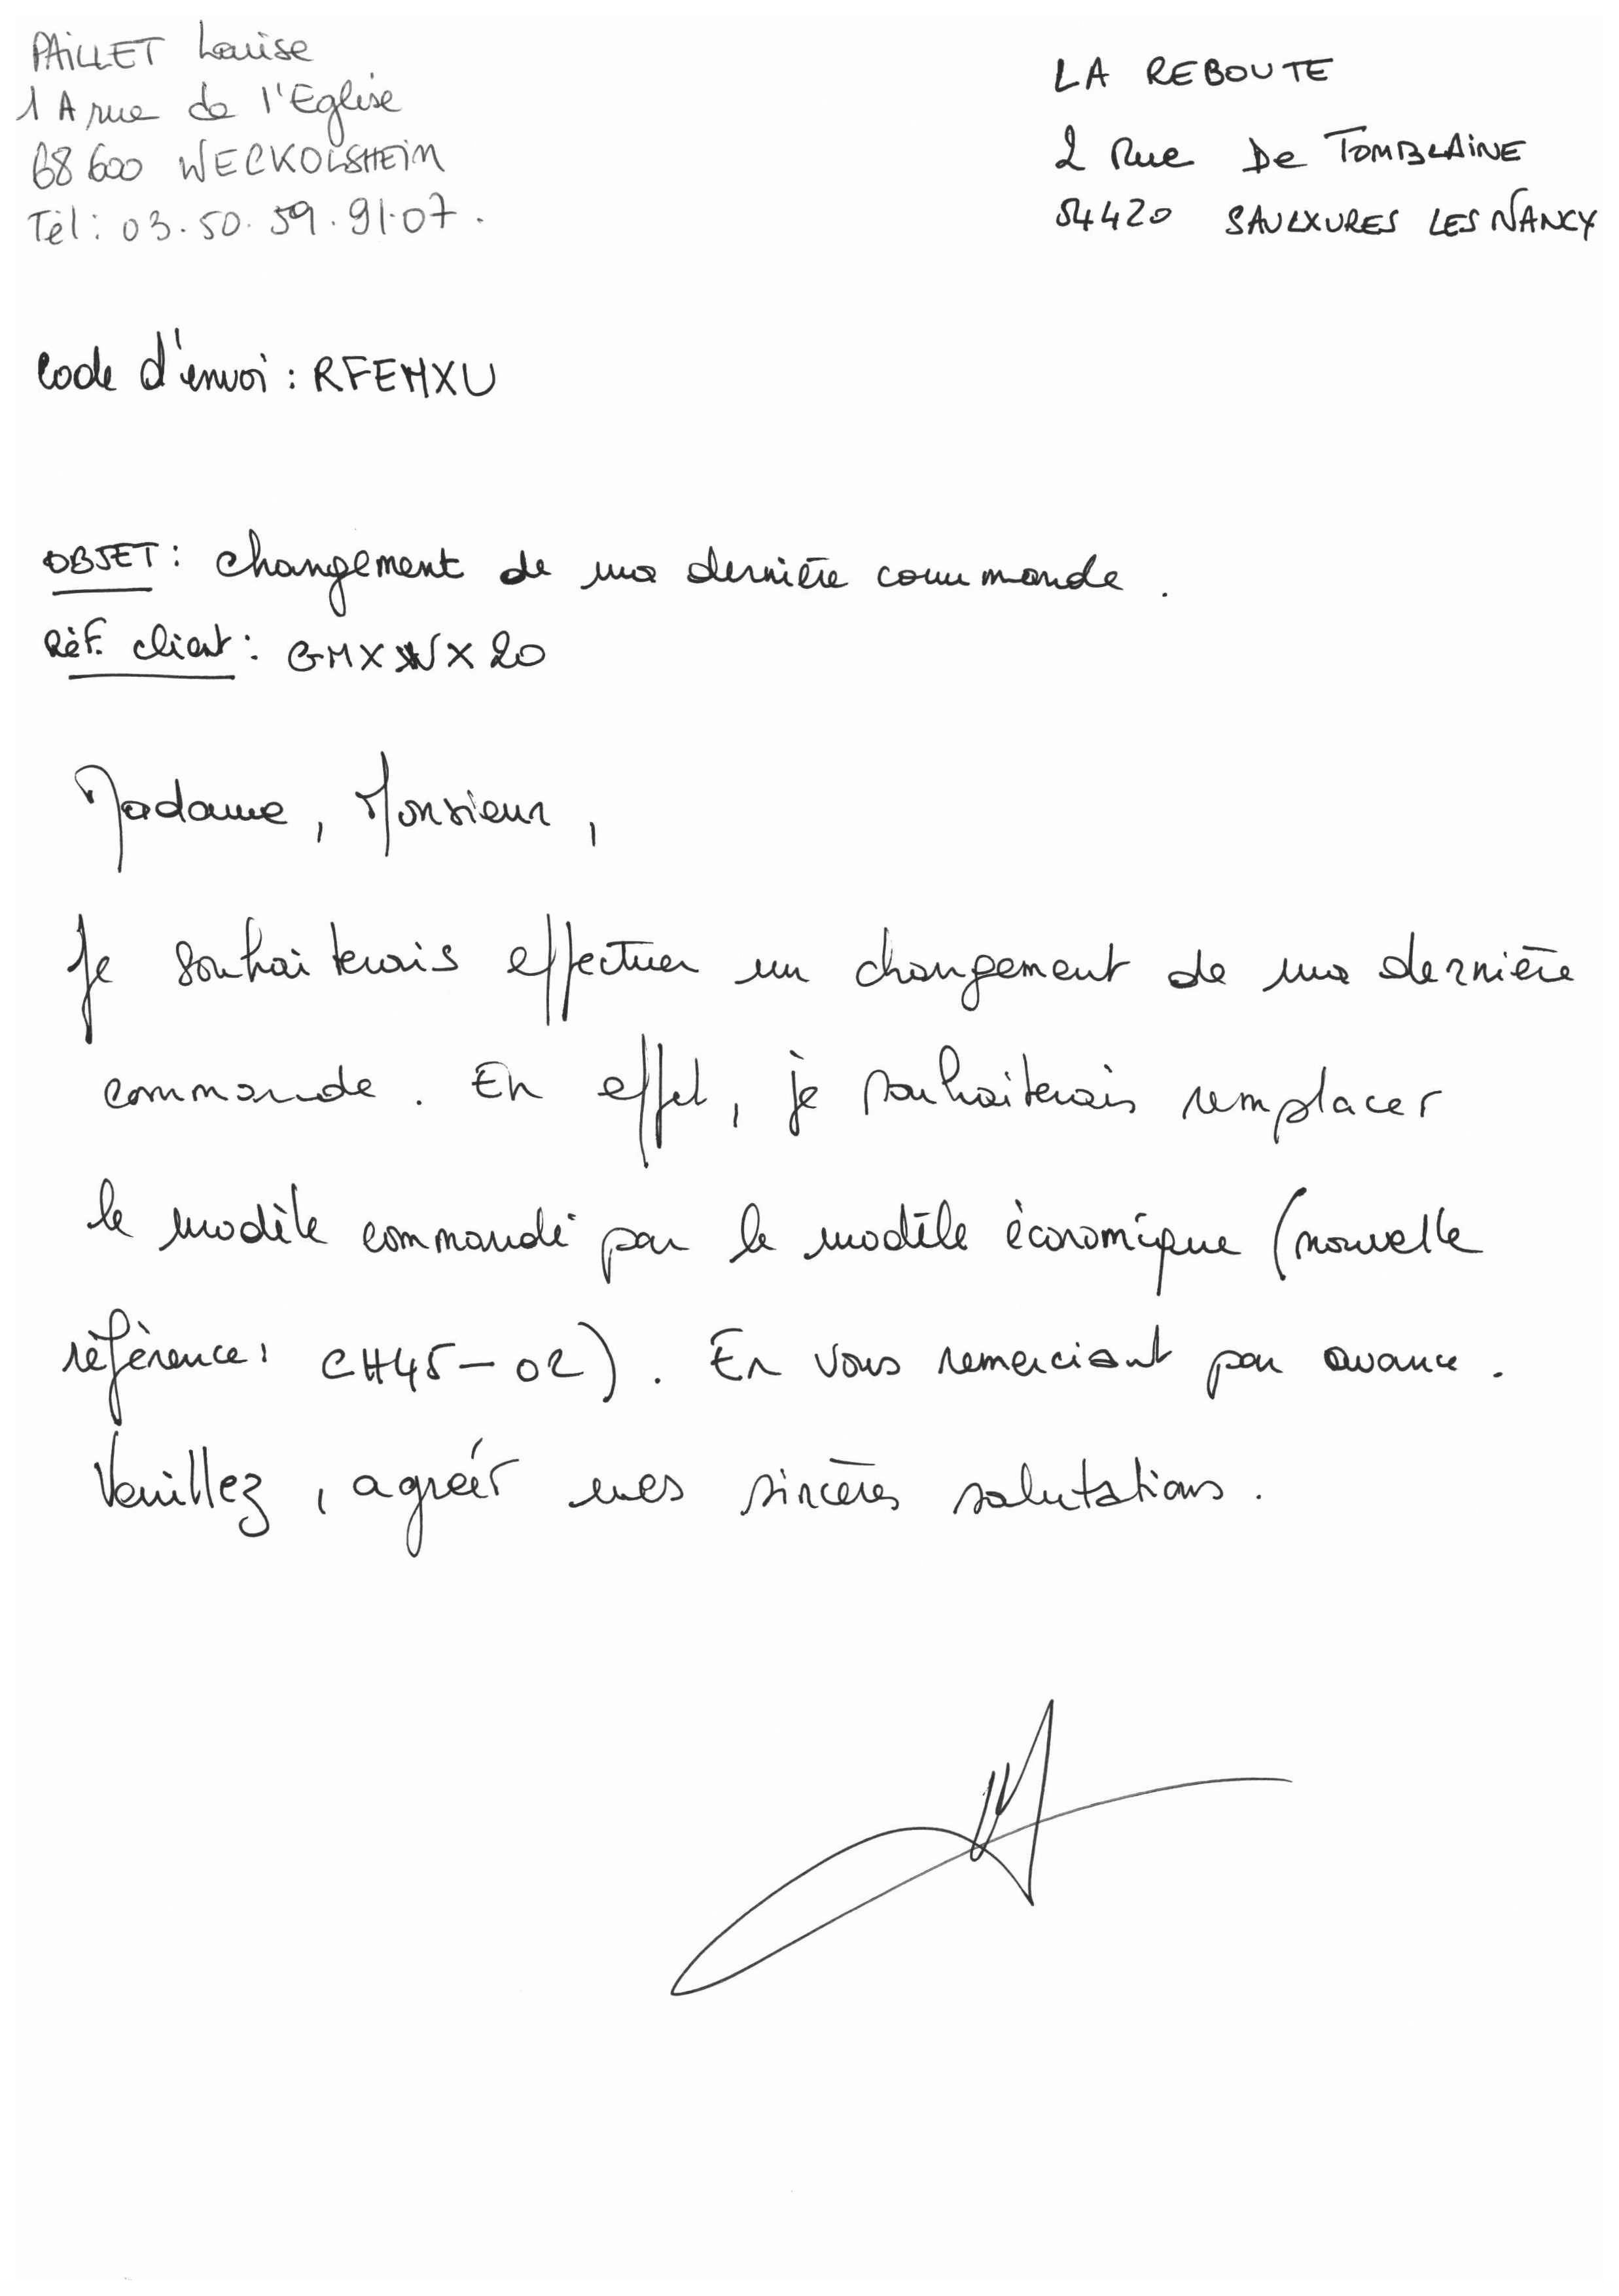 PAILLET Louise
1 A rue de l'Eglise
68 600 WECKOLSHEIM
Tèl : 03.50.59.91.07.
LA REBOUTE
2 Rue De TOMBLAINE
54420 SAULXURES LES NANCY
Code d'envoi : RFEMXU
OBJET : changement de ma dernière commande.
Rèf. client :
Madame, Monsieur,
Je souhaiterais effectuer un changement de ma dernière
commande. En effet, je souhaiterais remplacer
le modèle commandé par le modèle économique (nouvelle
référence : CH45-02). En vous remerciant par avance.
Veuillez, agréér mes sincères salutations.